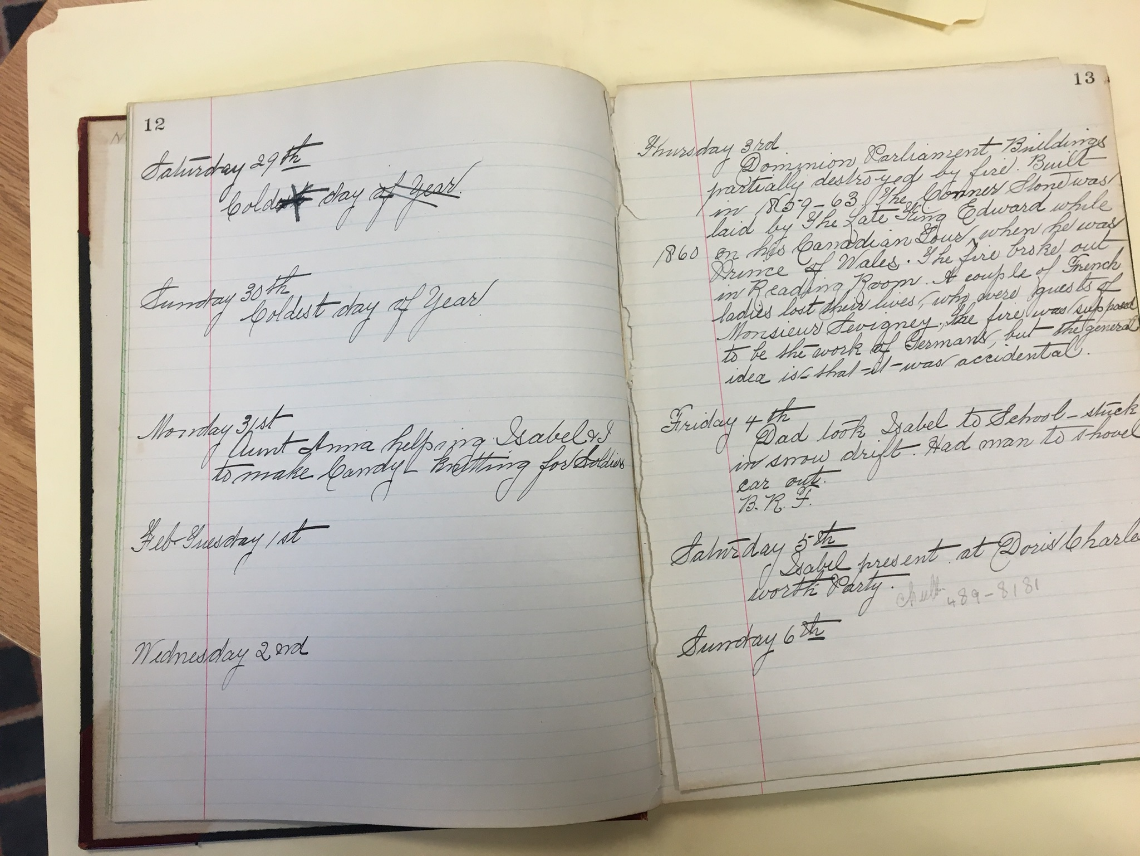 12
Saturday 29th
Cold day of Year.
Sunday 30th
Coldest day of Year
Monday 31st
Aunt Anna helping Isabel & I
to make Candy - Knitting for Soldiers
Feb- Tuesday 1st
Wednesday 2nd
13
Thursday 3rd
Dominion Parliament Buildings
partially destroyed by fire. Built
in 1859-63. The Conner Stone was
laid by The Late King Edward while
1860 on his Canadian Tour, when he was
Prince of Wales. The fire broke out
in Reading Room. A couple of French
ladies lost their lives, who were guests of
Monsieur Sevigney. the fire was supposed
to be the work of Germans, but the general
idea is that it was accidental.
Friday 4th
Dad took Isabel to School - stuck
in snow drift. Had man to shovel
car out.
B. R. F.
Saturday 5th
Isabel present at Doris Charles
worth Party.
489-8181
Sunday 6th